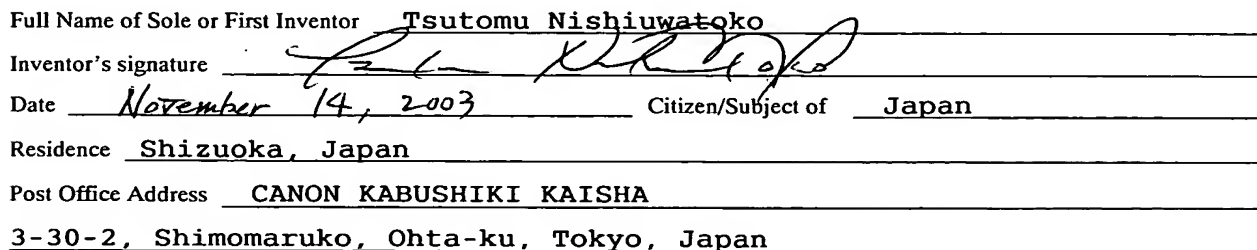 Full Name of Sole or First Inventor Tsutomu Nishiuwatoko
Inventor's signature
Date November 14, 2003 Citizen/Subject of Japan
Residence Shizuoka, Japan
Post Office Address CANON KABUSHIKI KAISHA
3-30-2, Shimomaruko, Ohta-ku, Tokyo, Japan